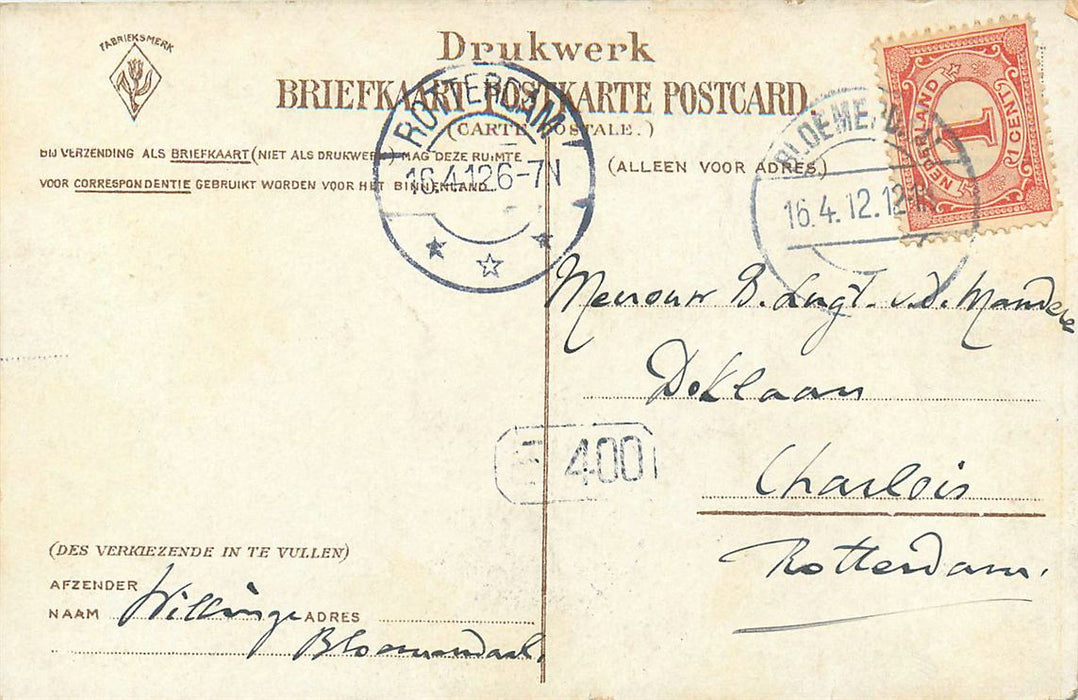 FABRIEKSMERK
Drukwerk
BRIEFKAART POSTKARTE POSTCARD
(CARTE POSTALE.)
BIJ VERZENDING ALS BRIEFKAART (NIET ALS DRUKWERK) MAG DEZE RUIMTE
VOOR CORRESPONDENTIE GEBRUIKT WORDEN VOOR HET BINNENLAND.
(ALLEEN VOOR ADRES.)
ROTTERDAM
16.4.12 6-7N
16.4.12.12
NEDERLAND
1
1 CENT
Mevrouw B. Lugt v.d. Mandele
Doklaan
400
Charlois
Rotterdam.
(DES VERKIEZENDE IN TE VULLEN)
AFZENDER
NAAM Willinge ADRES
Bloemendaal.